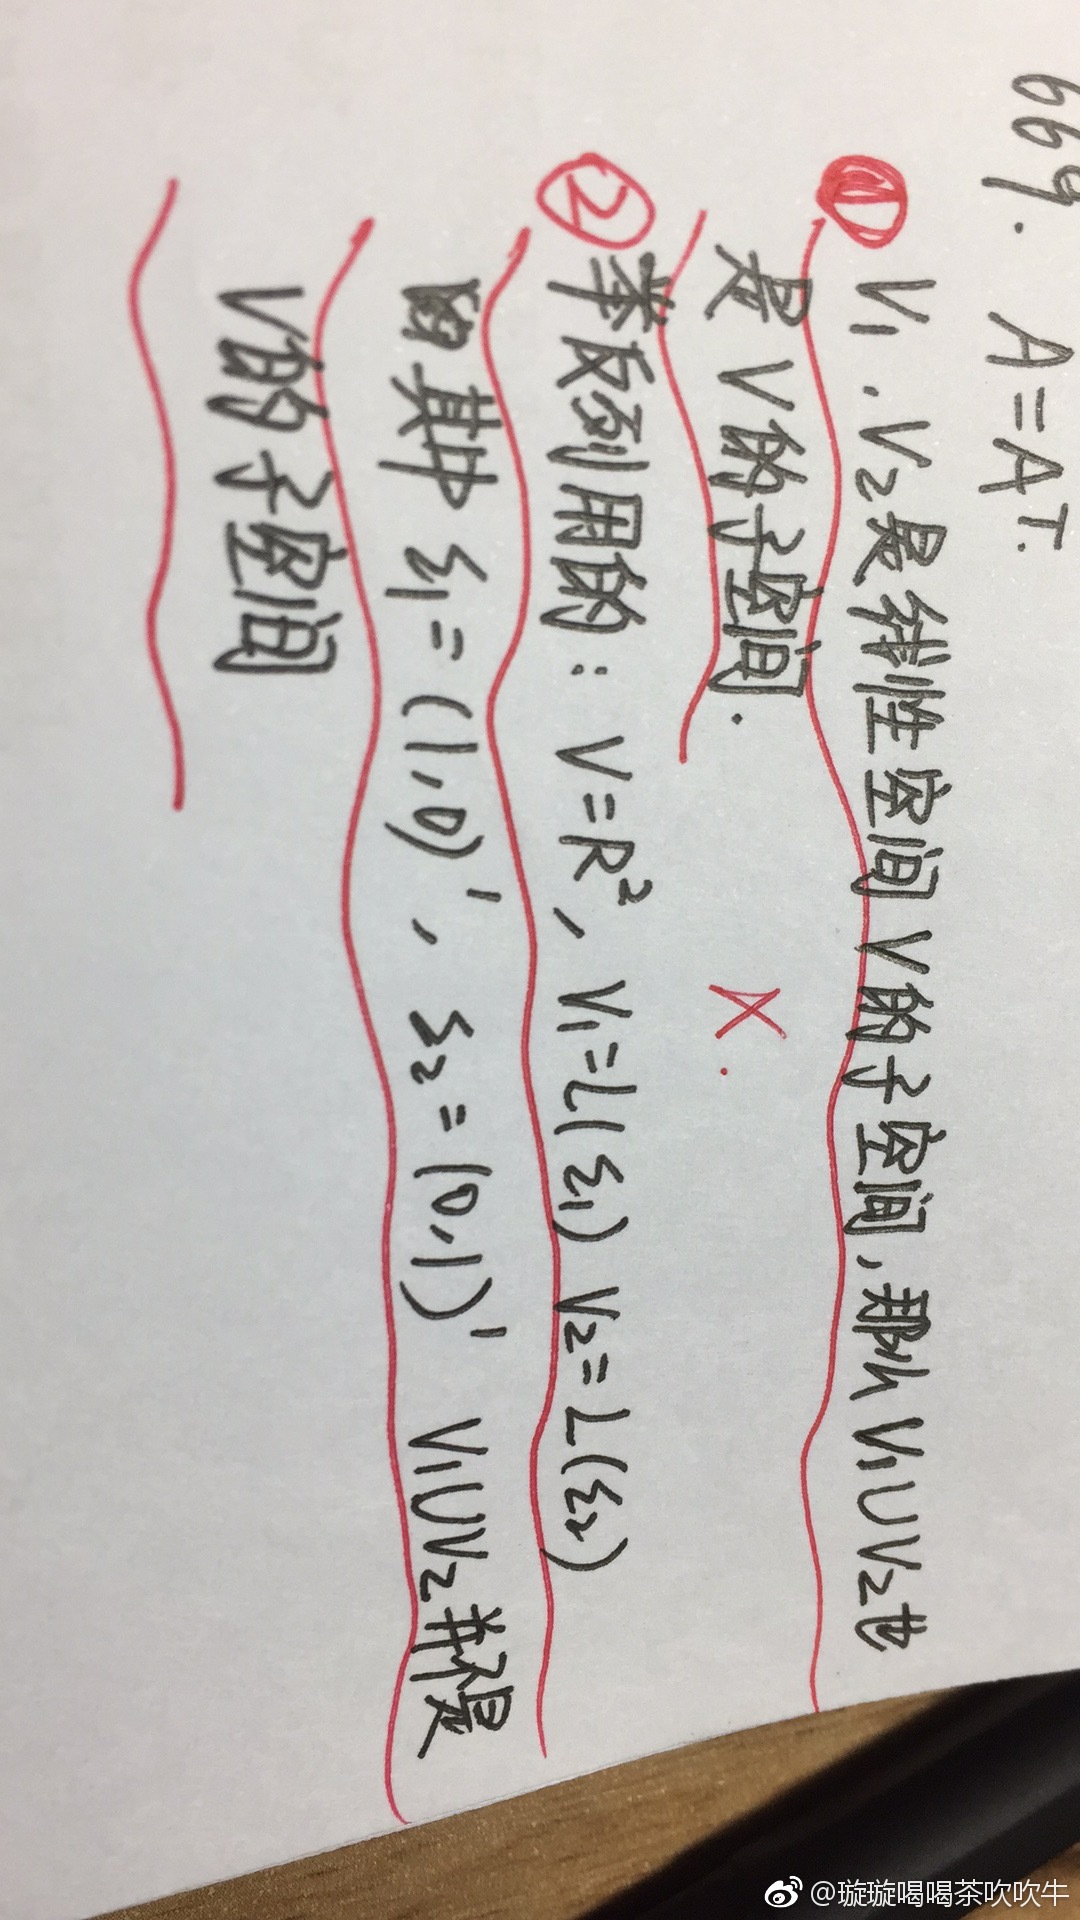 669. A=Aᵀ.
① V₁.V₂是线性空间V的子空间,那么V₁UV₂也
是V的子空间. ×.
② 举反列用的:V=R²,V₁=L(ξ₁) V₂=L(ξ₂)
由其中 ξ₁=(1,0)',ξ₂=(0,1)' V₁UV₂并不是
V的子空间
@璇璇喝喝茶吹吹牛